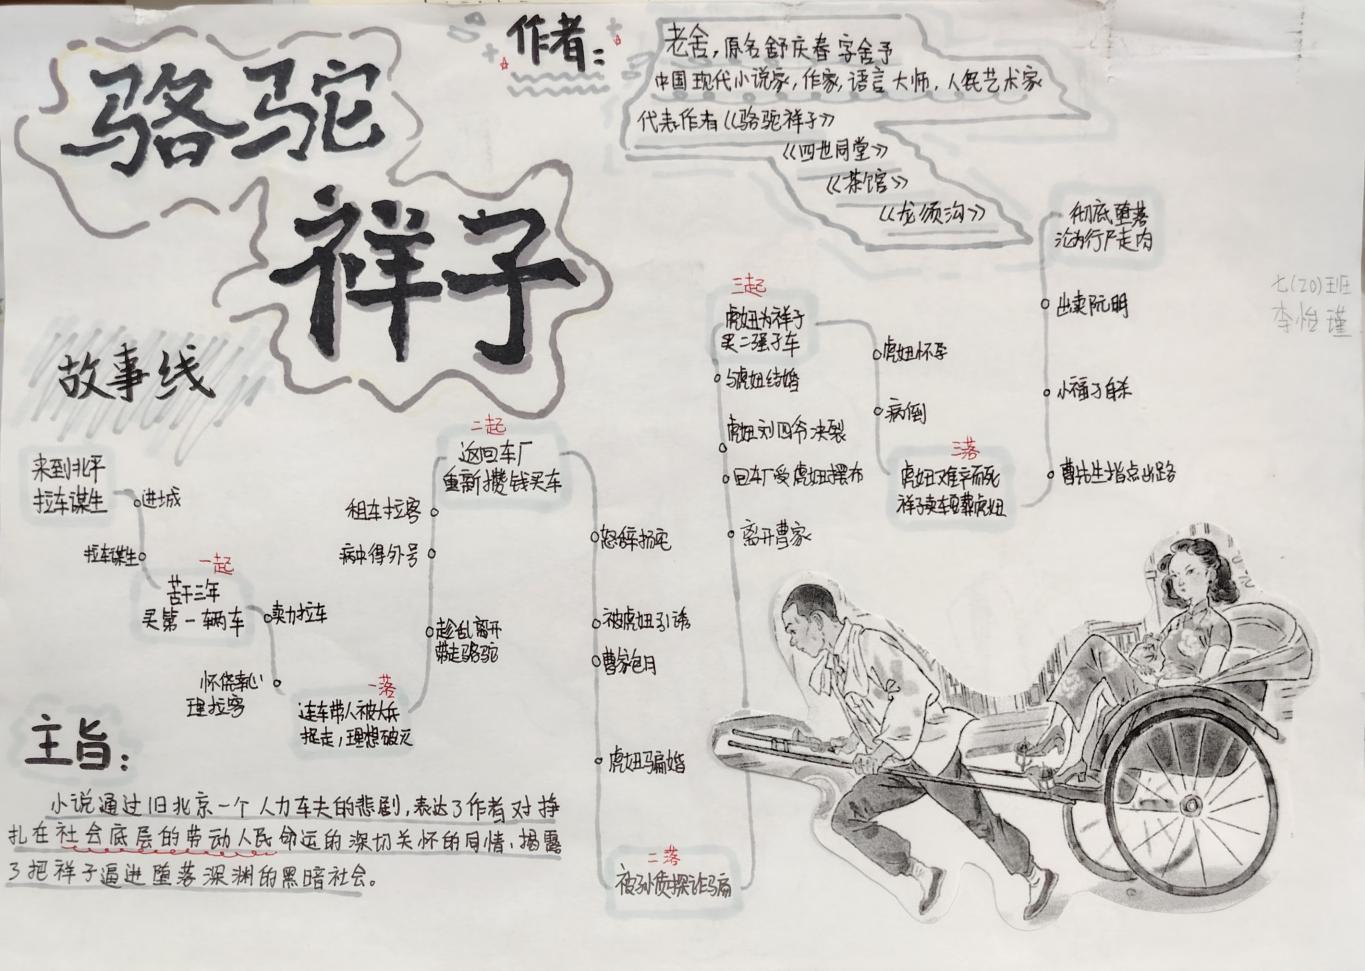 骆驼
祥子
作者:
老舍,原名舒庆春字舍予
中国现代小说家,作家,语言大师,人民艺术家
代表作者《骆驼祥子》
《四世同堂》
《茶馆》
《龙须沟》
七(20)班
李怡瑾
故事线
来到北平
拉车谋生
进城
拉车谋生
一起
苦干三年
买第一辆车
卖力拉车
怀侥幸心
理拉客
一落
连车带人被大兵
捉走,理想破灭
趁乱离开
带走骆驼
病中得外号
租车拉客
二起
返回车厂
重新攒钱买车
怒辞杨宅
被虎妞引诱
曹家包月
虎妞骗婚
二落
被孙侦探诈骗
离开曹家
回车厂受虎妞摆布
虎妞刘四爷决裂
与虎妞结婚
三起
虎妞为祥子
买二强子车
虎妞怀孕
病倒
三落
虎妞难产而死
祥子卖车葬虎妞
曹先生指点出路
小福子自杀
出卖阮明
彻底堕落
沦为行尸走肉
主旨:
小说通过旧北京一个人力车夫的悲剧,表达了作者对挣
扎在社会底层的劳动人民命运的深切关怀的同情,揭露
了把祥子逼进堕落深渊的黑暗社会。